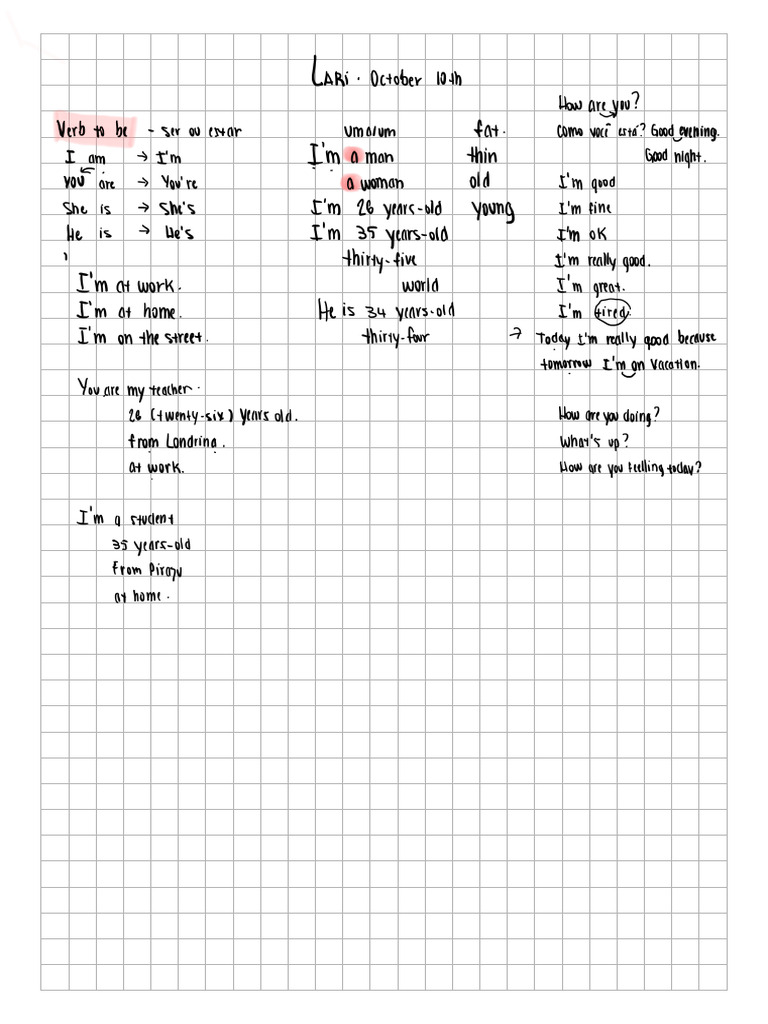 LARi · October 10th
Verb to be - ser ou estar
I am → I'm
you are → You're
She is → She's
He is → He's
I'm at work.
I'm at home.
I'm on the street.
You are my teacher.
26 (twenty-six) years old.
from Londrina.
at work.
I'm a student
35 years-old
from Piraju
at home.
uma/um
I'm a man
a woman
I'm 26 years-old
I'm 35 years-old
thirty-five
world
He is 34 years-old
thirty-four
fat.
thin
old
young
How are you?
como você está? Good evening.
Good night.
I'm good
I'm fine
I'm OK
I'm really good.
I'm great.
I'm tired.
→ Today I'm really good because
tomorrow I'm on vacation.
How are you doing?
What's up?
How are you feelling today?